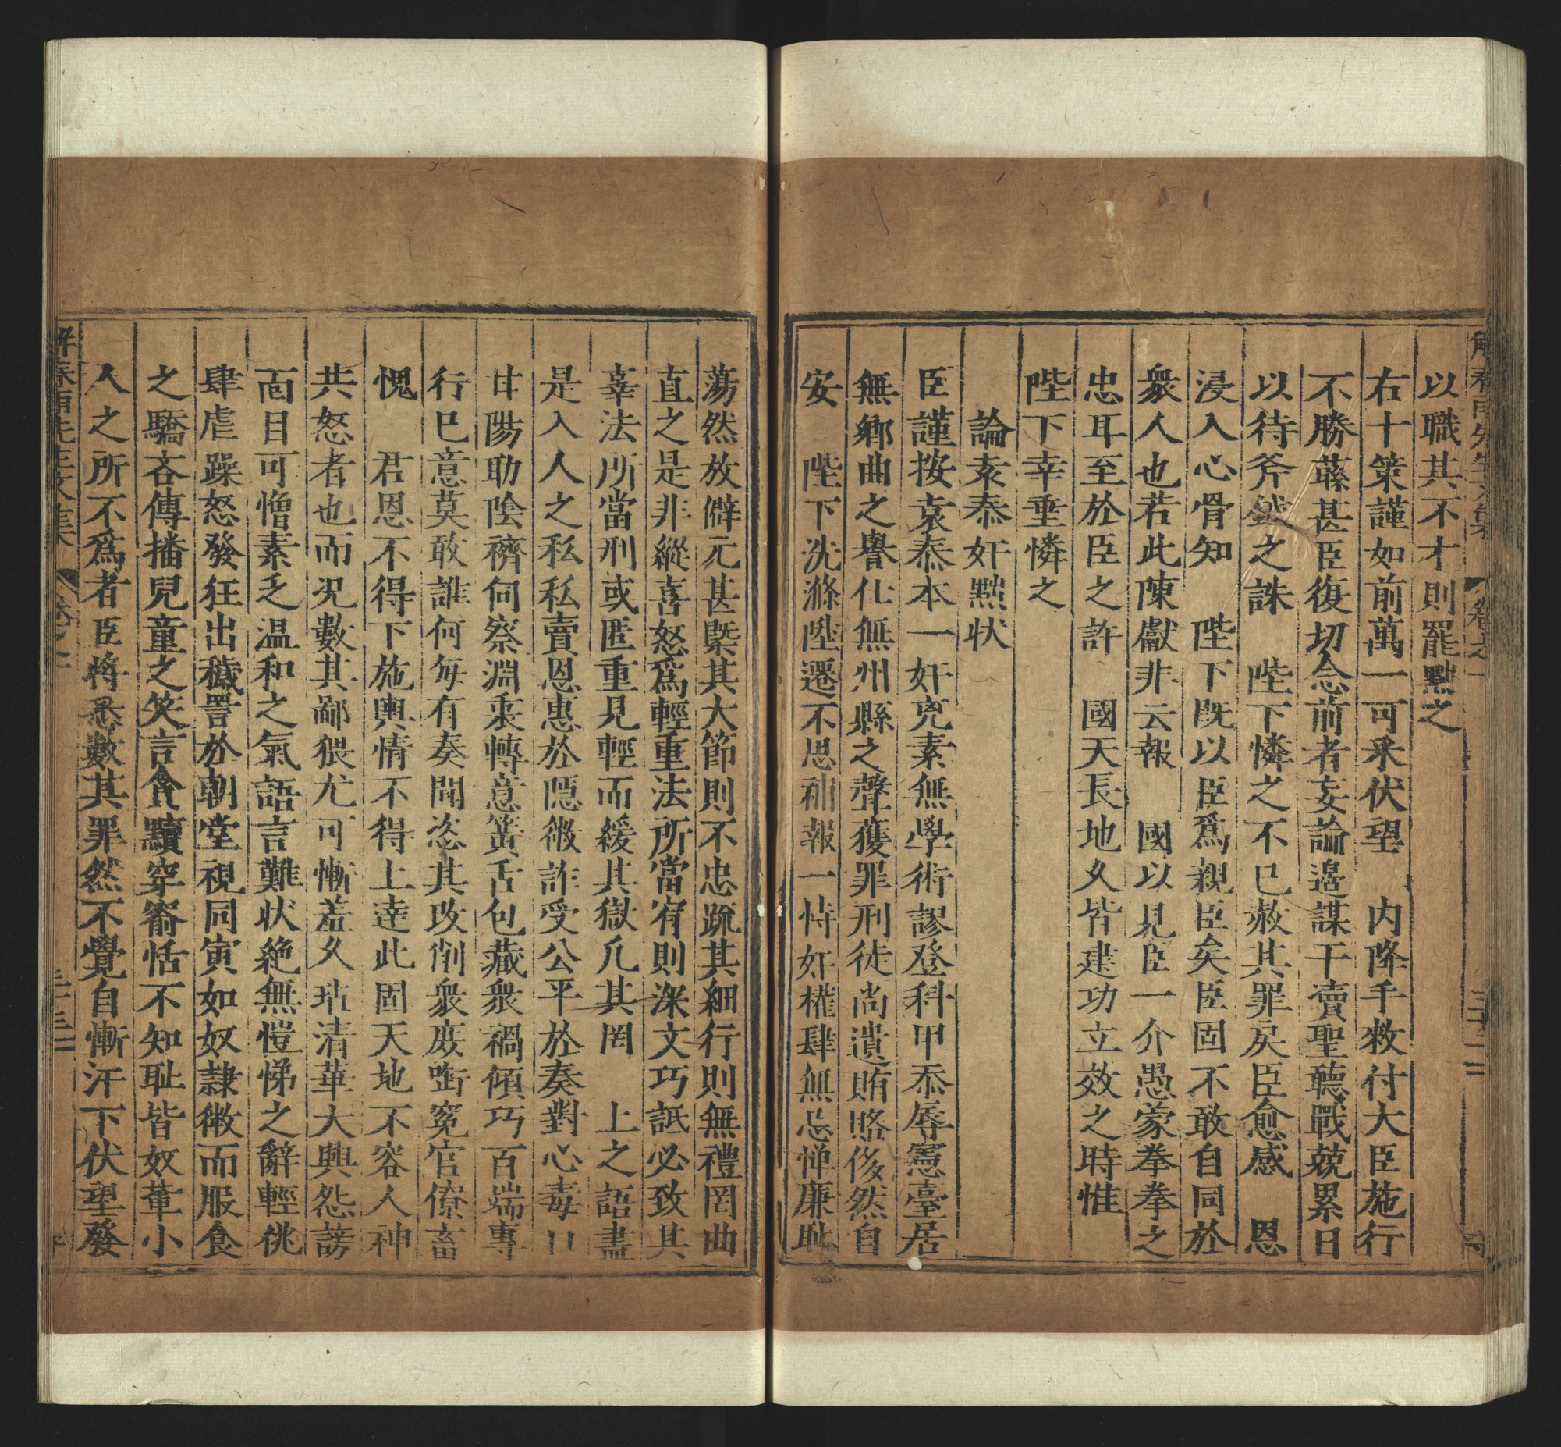 以職其不才則罷黜之
右十策謹如前萬一可采伏望　內降手敕付大臣施行
不勝藤甚臣復切念前者妄論邊謀干瀆聖聽戰兢累日
以待斧鉞之誅　陛下憐之不已赦其罪戾臣愈感　恩
浸入心骨知　陛下既以臣爲親臣矣臣固不敢自同於
衆人也若此陳獻非云報　國以見臣一介愚蒙拳拳之
忠耳至於臣之許　國天長地久皆建功立效之時惟
陛下幸垂憐之
論袁泰奸黠狀
臣謹按袁泰本一奸兇素無學術謬登科甲忝辱憲臺居
無鄉曲之譽仕無州縣之聲獲罪刑徒尚遺賄賂俟然自
安　陛下洗滌陞遷不思補報一恃奸權肆無忌憚廉恥
蕩然放僻元甚槩其大節則不忠䟽其細行則無禮罔曲
直之是非縱喜怒爲輕重法所當宥則深文巧詆必致其
辜法所當刑或匿重見輕而緩其獄凡其罔　上之語盡
是入人之私私賣恩惠於隱微詐受公平於奏對心毒口
甘陽助陰擠伺察淵衷轉意簧舌包藏衆禍傾巧百端專
行已意莫敢誰何每有奏聞恣其改削衆庶啣寃官僚畜
愧　君恩不得下施輿情不得上達此固天地不容人神
共怒者也而況數其鄙猥尤可慚羞久玷清華大興怨謗
靣目可憎素乏温和之氣語言難狀絶無愷悌之辭輕佻
肆虐躁怒發狂出穢詈於朝堂視同寅如奴隷微而服食
之驕吝傳播兒童之笑言貪黷穿窬恬不知耻皆奴輩小
人之所不爲者臣將悉數其罪然不覺自慚汗下伏望發